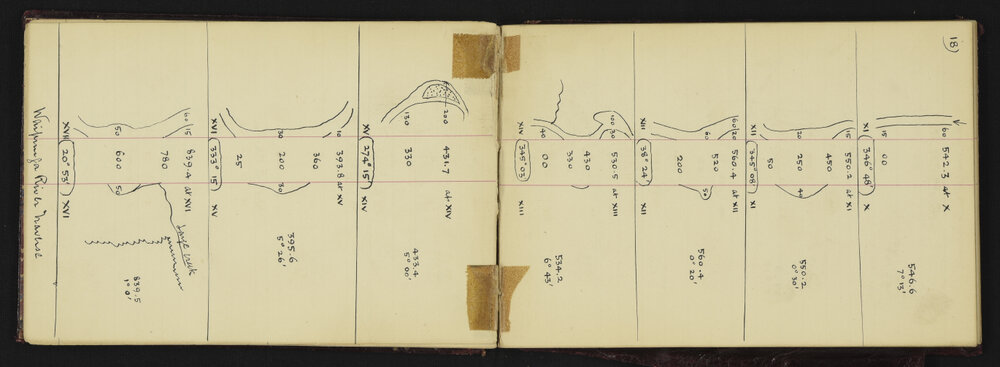 18
60 542.3 at X
546.6
7° 13'
00
XI 346° 48' X
15 550.2 at XI
450
20 250 40
550.2
0° 30'
50
XII 345° 08' XI
60/20 560.4 at XII
60 520 50
560.4
0° 20'
200
XIII 38° 24' XII
30 530.5 at XIII
100
430
330
534.2
6° 43'
40 00
XIV 345° 03' XIII
200 431.7 at XIV
130 330
433.4
5° 00'
XV 274° 15' XIV
10 393.8 at XV
360
30 200 30
395.6
5° 26'
25
XVI 333° 15' XV
60/15 839.4 at XVI
Large creek
780
50 600 50
839.5
1° 0'
XVII 20° 53' XVI
River Traverse